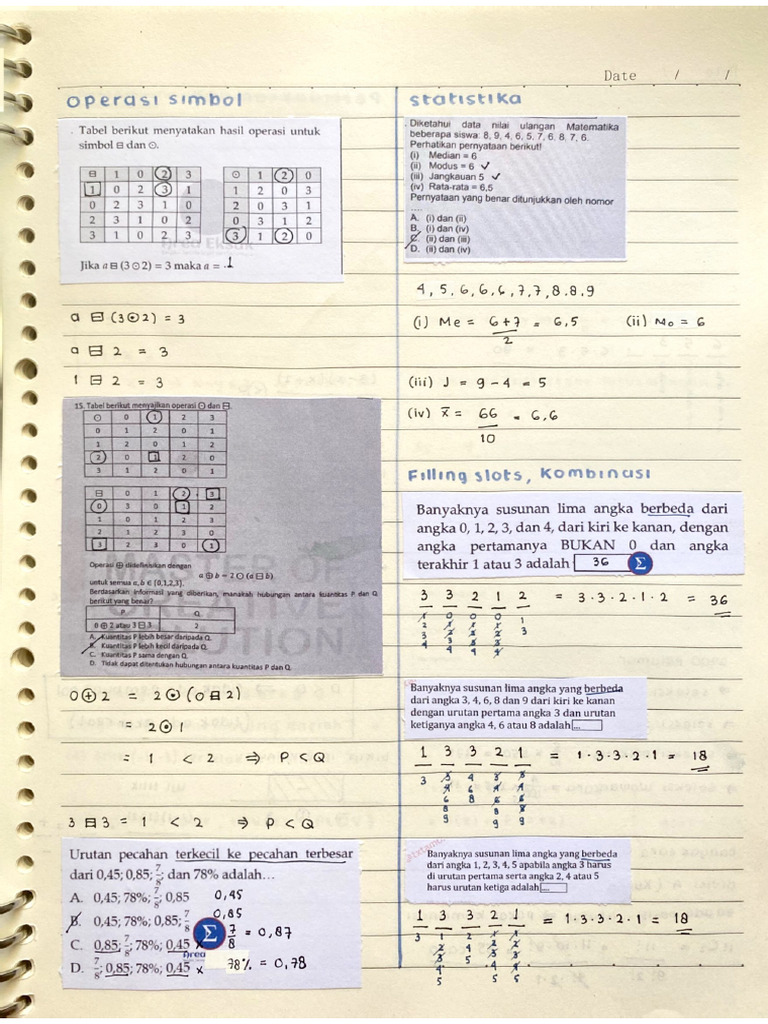 Date / /
Operasi Simbol
Tabel berikut menyatakan hasil operasi untuk
simbol ⊟ dan ⊙.
⊟ 1 0 2 3
1 0 2 3 1
0 2 3 1 0
2 3 1 0 2
3 1 0 2 3
⊙ 1 2 0
1 2 0 3
2 0 3 1
0 3 1 2
3 1 2 0
Area Eksak
Jika a ⊟ (3 ⊙ 2) = 3 maka a = .1
a ⊟ (3 ⊙ 2) = 3
a ⊟ 2 = 3
1 ⊟ 2 = 3
15. Tabel berikut menyajikan operasi ⊙ dan ⊟.
⊙ 0 1 2 3
0 1 2 0 1
1 2 0 1 2
2 0 1 2 0
3 1 2 0 1
⊟ 0 1 2 3
0 3 0 1 2
1 0 1 2 3
2 1 2 3 0
3 2 3 0 1
Operasi ⊕ didefinisikan dengan
a ⊕ b = 2 ⊙ (a ⊟ b)
untuk semua a, b ∈ {0,1,2,3}.
Berdasarkan informasi yang diberikan, manakah hubungan antara kuantitas P dan Q
berikut yang benar?
P Q
0 ⊕ 2 atau 3 ⊟ 3 2
A. Kuantitas P lebih besar daripada Q.
B. Kuantitas P lebih kecil daripada Q.
C. Kuantitas P sama dengan Q.
D. Tidak dapat ditentukan hubungan antara kuantitas P dan Q.
0 ⊕ 2 = 2 ⊙ (0 ⊟ 2)
= 2 ⊙ 1
= 1 < 2 ⇒ P < Q
3 ⊟ 3 = 1 < 2 ⇒ P < Q
Urutan pecahan terkecil ke pecahan terbesar
dari 0,45; 0,85; 7/8; dan 78% adalah…
A. 0,45; 78%; 7/8; 0,85
B. 0,45; 78%; 0,85; 7/8
C. 0,85; 7/8; 78%; 0,45 x
D. 7/8; 0,85; 78%; 0,45 x
0,45
0,85
7/8 = 0,87
78% = 0,78
Σ
Area
Statistika
Diketahui data nilai ulangan Matematika
beberapa siswa: 8, 9, 4, 6, 5, 7, 6, 8, 7, 6.
Perhatikan pernyataan berikut!
(i) Median = 6
(ii) Modus = 6 ✓
(iii) Jangkauan 5 ✓
(iv) Rata-rata = 6,5
Pernyataan yang benar ditunjukkan oleh nomor
....
A. (i) dan (ii)
B. (i) dan (iv)
C. (ii) dan (iii)
D. (ii) dan (iv)
4, 5, 6, 6, 6, 7, 7, 8. 8. 9
(i) Me = 6+7/2 = 6,5 (ii) Mo = 6
(iii) J = 9 - 4 = 5
(iv) x̄ = 66/10 = 6,6
Filling slots, Kombinasi
Banyaknya susunan lima angka berbeda dari
angka 0, 1, 2, 3, dan 4, dari kiri ke kanan, dengan
angka pertamanya BUKAN 0 dan angka
terakhir 1 atau 3 adalah 36 Σ
3 3 2 1 2 = 3 · 3 · 2 · 1 · 2 = 36
1 0 0 0 1
2 1 1 1 3
3 2 2 2
4 3 3 3
4 4 4
Banyaknya susunan lima angka yang berbeda
dari angka 3, 4, 6, 8 dan 9 dari kiri ke kanan
dengan urutan pertama angka 3 dan urutan
ketiganya angka 4, 6 atau 8 adalah ...
1 3 3 2 1 = 1 · 3 · 3 · 2 · 1 = 18
3 3 4 3 3
4 6 4 4
6 8 6 6
8 8 8
9 9 9
Banyaknya susunan lima angka yang berbeda
dari angka 1, 2, 3, 4, 5 apabila angka 3 harus
di urutan pertama serta angka 2, 4 atau 5
harus urutan ketiga adalah ...
1 3 3 2 1 = 1 · 3 · 3 · 2 · 1 = 18
3 1 2 1 1
2 4 2 2
3 5 3 3
4 4 4
5 5 5